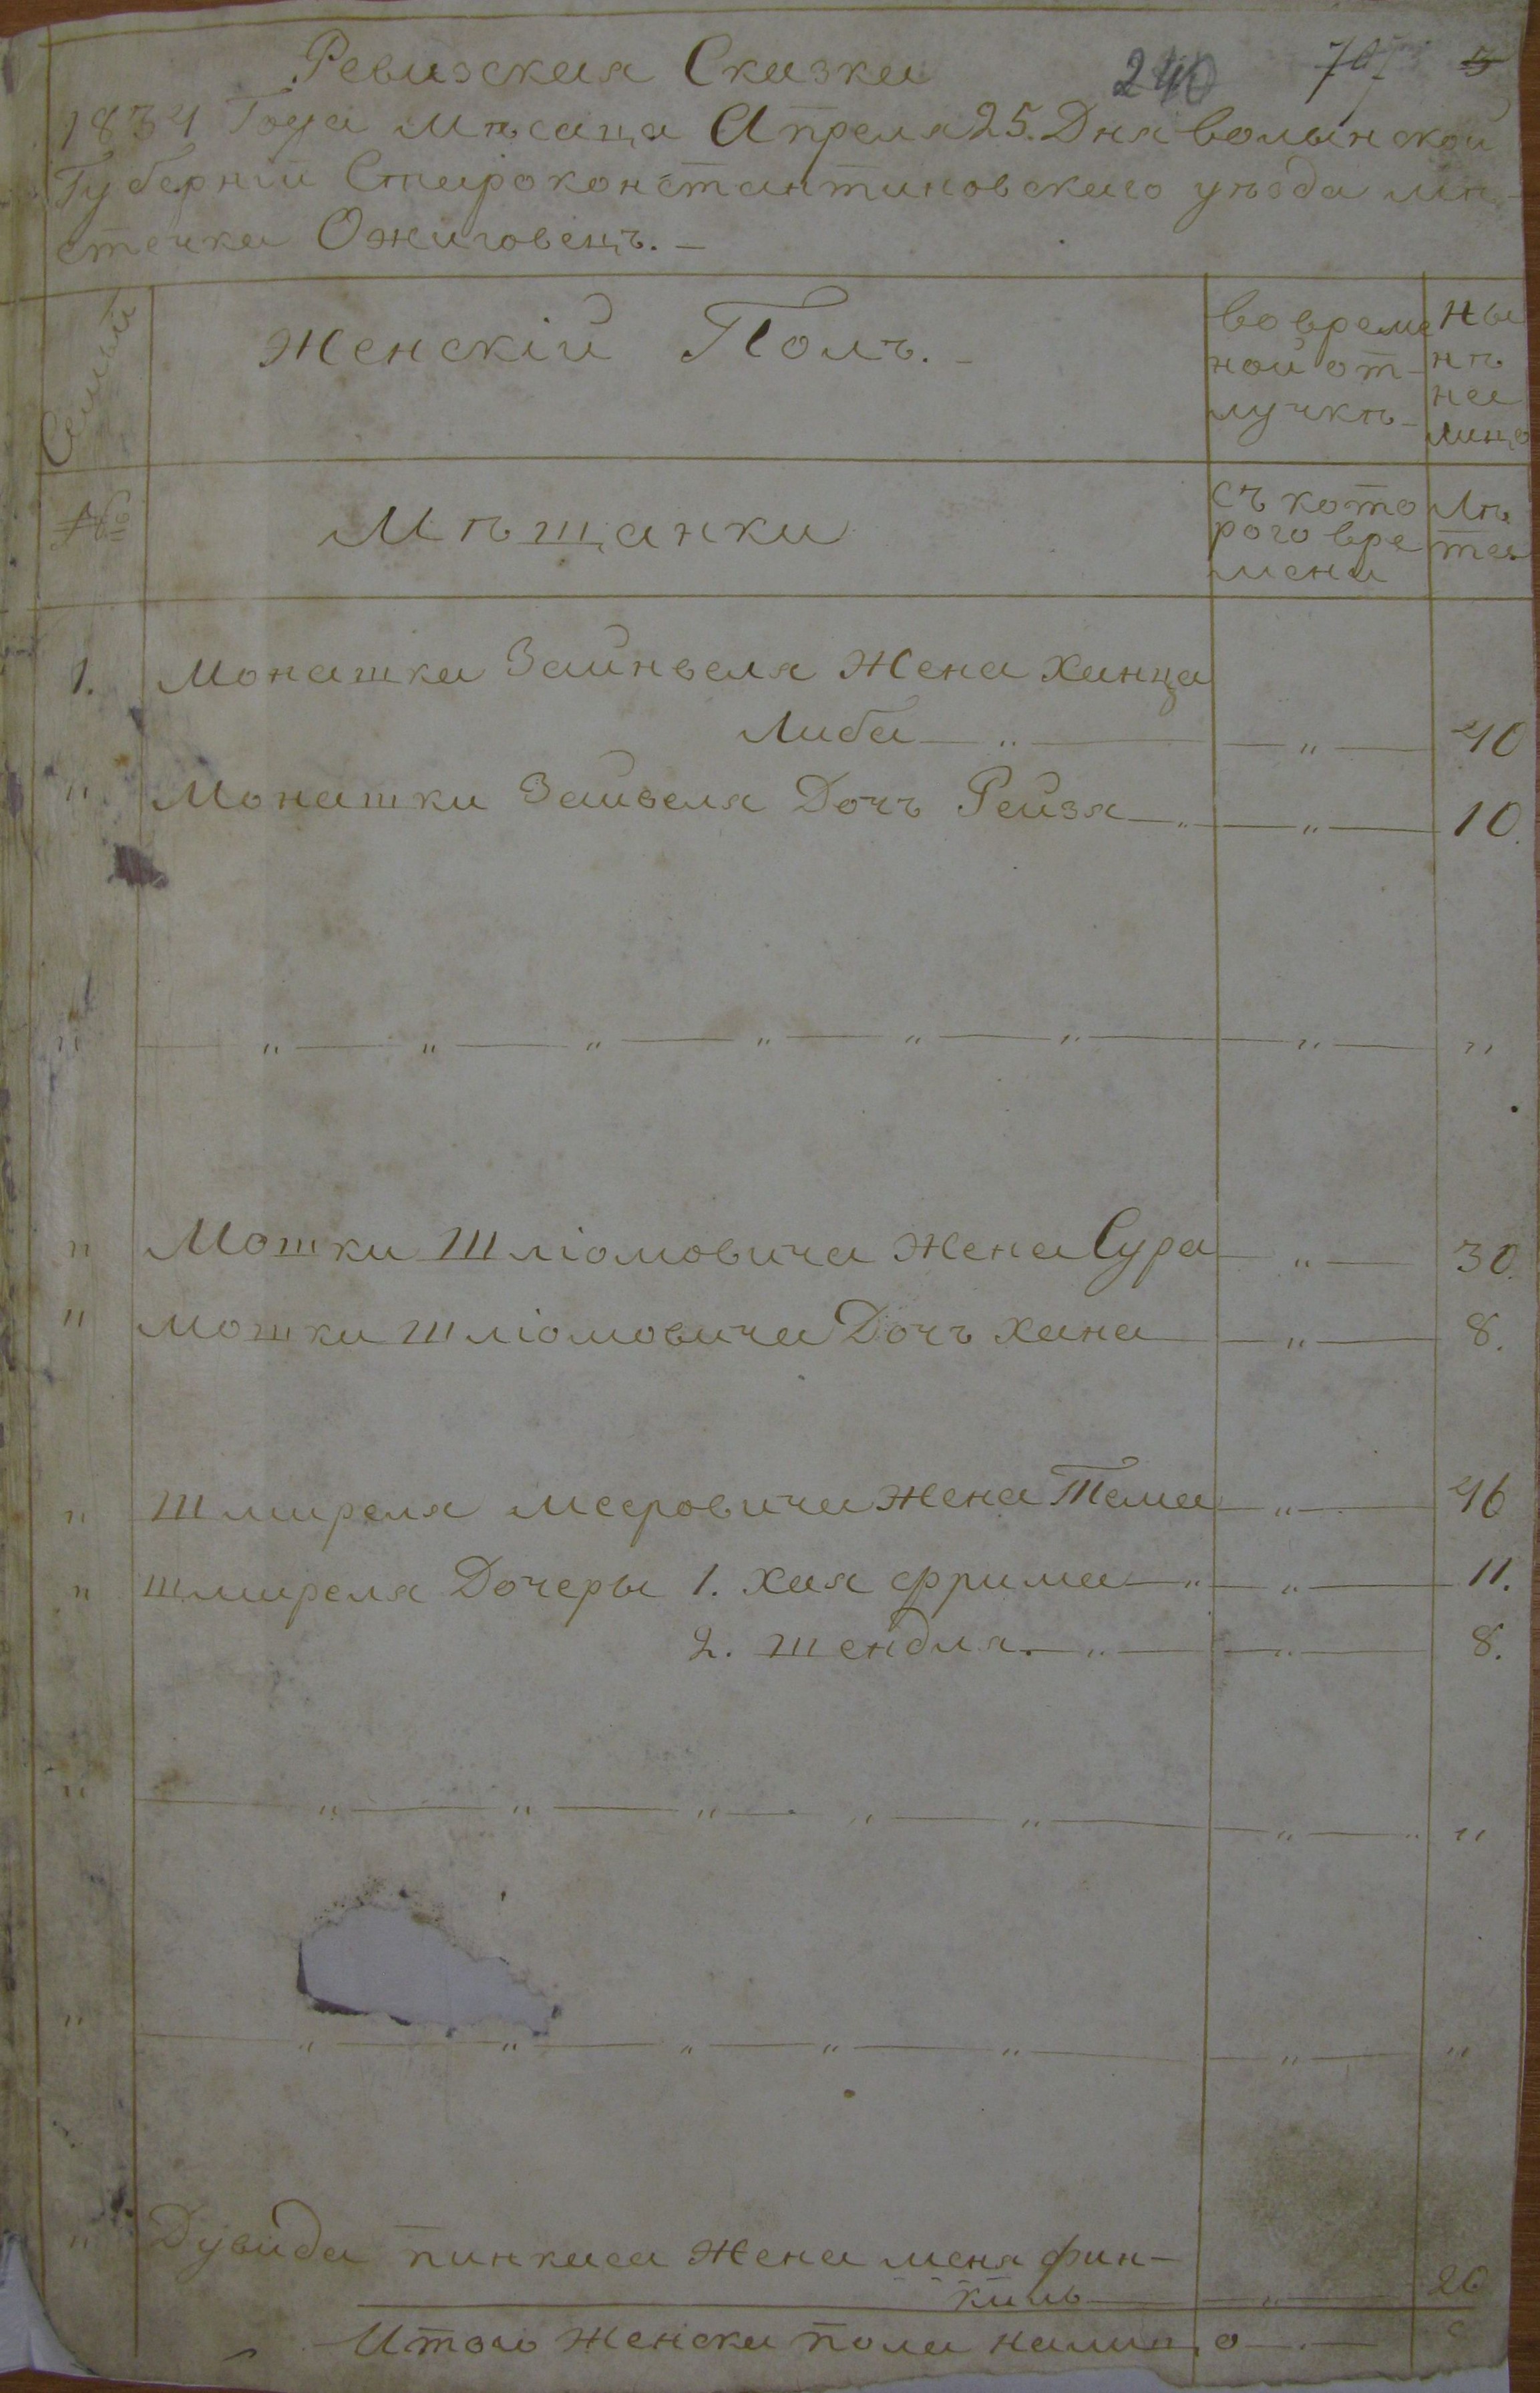 Ревизская Сказка 240
1834 Года мѣсаца Апреля 25. Дня волынской
Губерніи Староконстантиновскаго уѣзда мѣ-
стечка Ожиговецъ. —
Семьи
Женскій Полъ. —
во време
ной от-
лучкѣ-
ны
нѣ
на
лицо
№
Мѣщанки
съ кото
рого вре
мени
Лѣ
та
1. Монашка Зайнвеля Жена Ханца
Либа — " — — " — 40
" Монашки Зайвеля Дочь Рейзя — " — — " — 10.
" — " — " — " — " — " — " — — " — "
" Мошки Шліомовича Жена Сура — " — 30.
" Мошки Шліомовича Дочь Хана — " — 8.
" Шмиреля Мееровича Жена Тема — " — 46
" Шмиреля Дочеры 1. Хая фрима — " — — " — 11.
2. Шендля. — " — — " — 8.
" — " — " — " — " — " — — " — "
" — " — " — " — " — " — — " — "
" Дувида пинкаса Жена меня фин-
киль — " — 20
Итого Женска пола налицо — . —